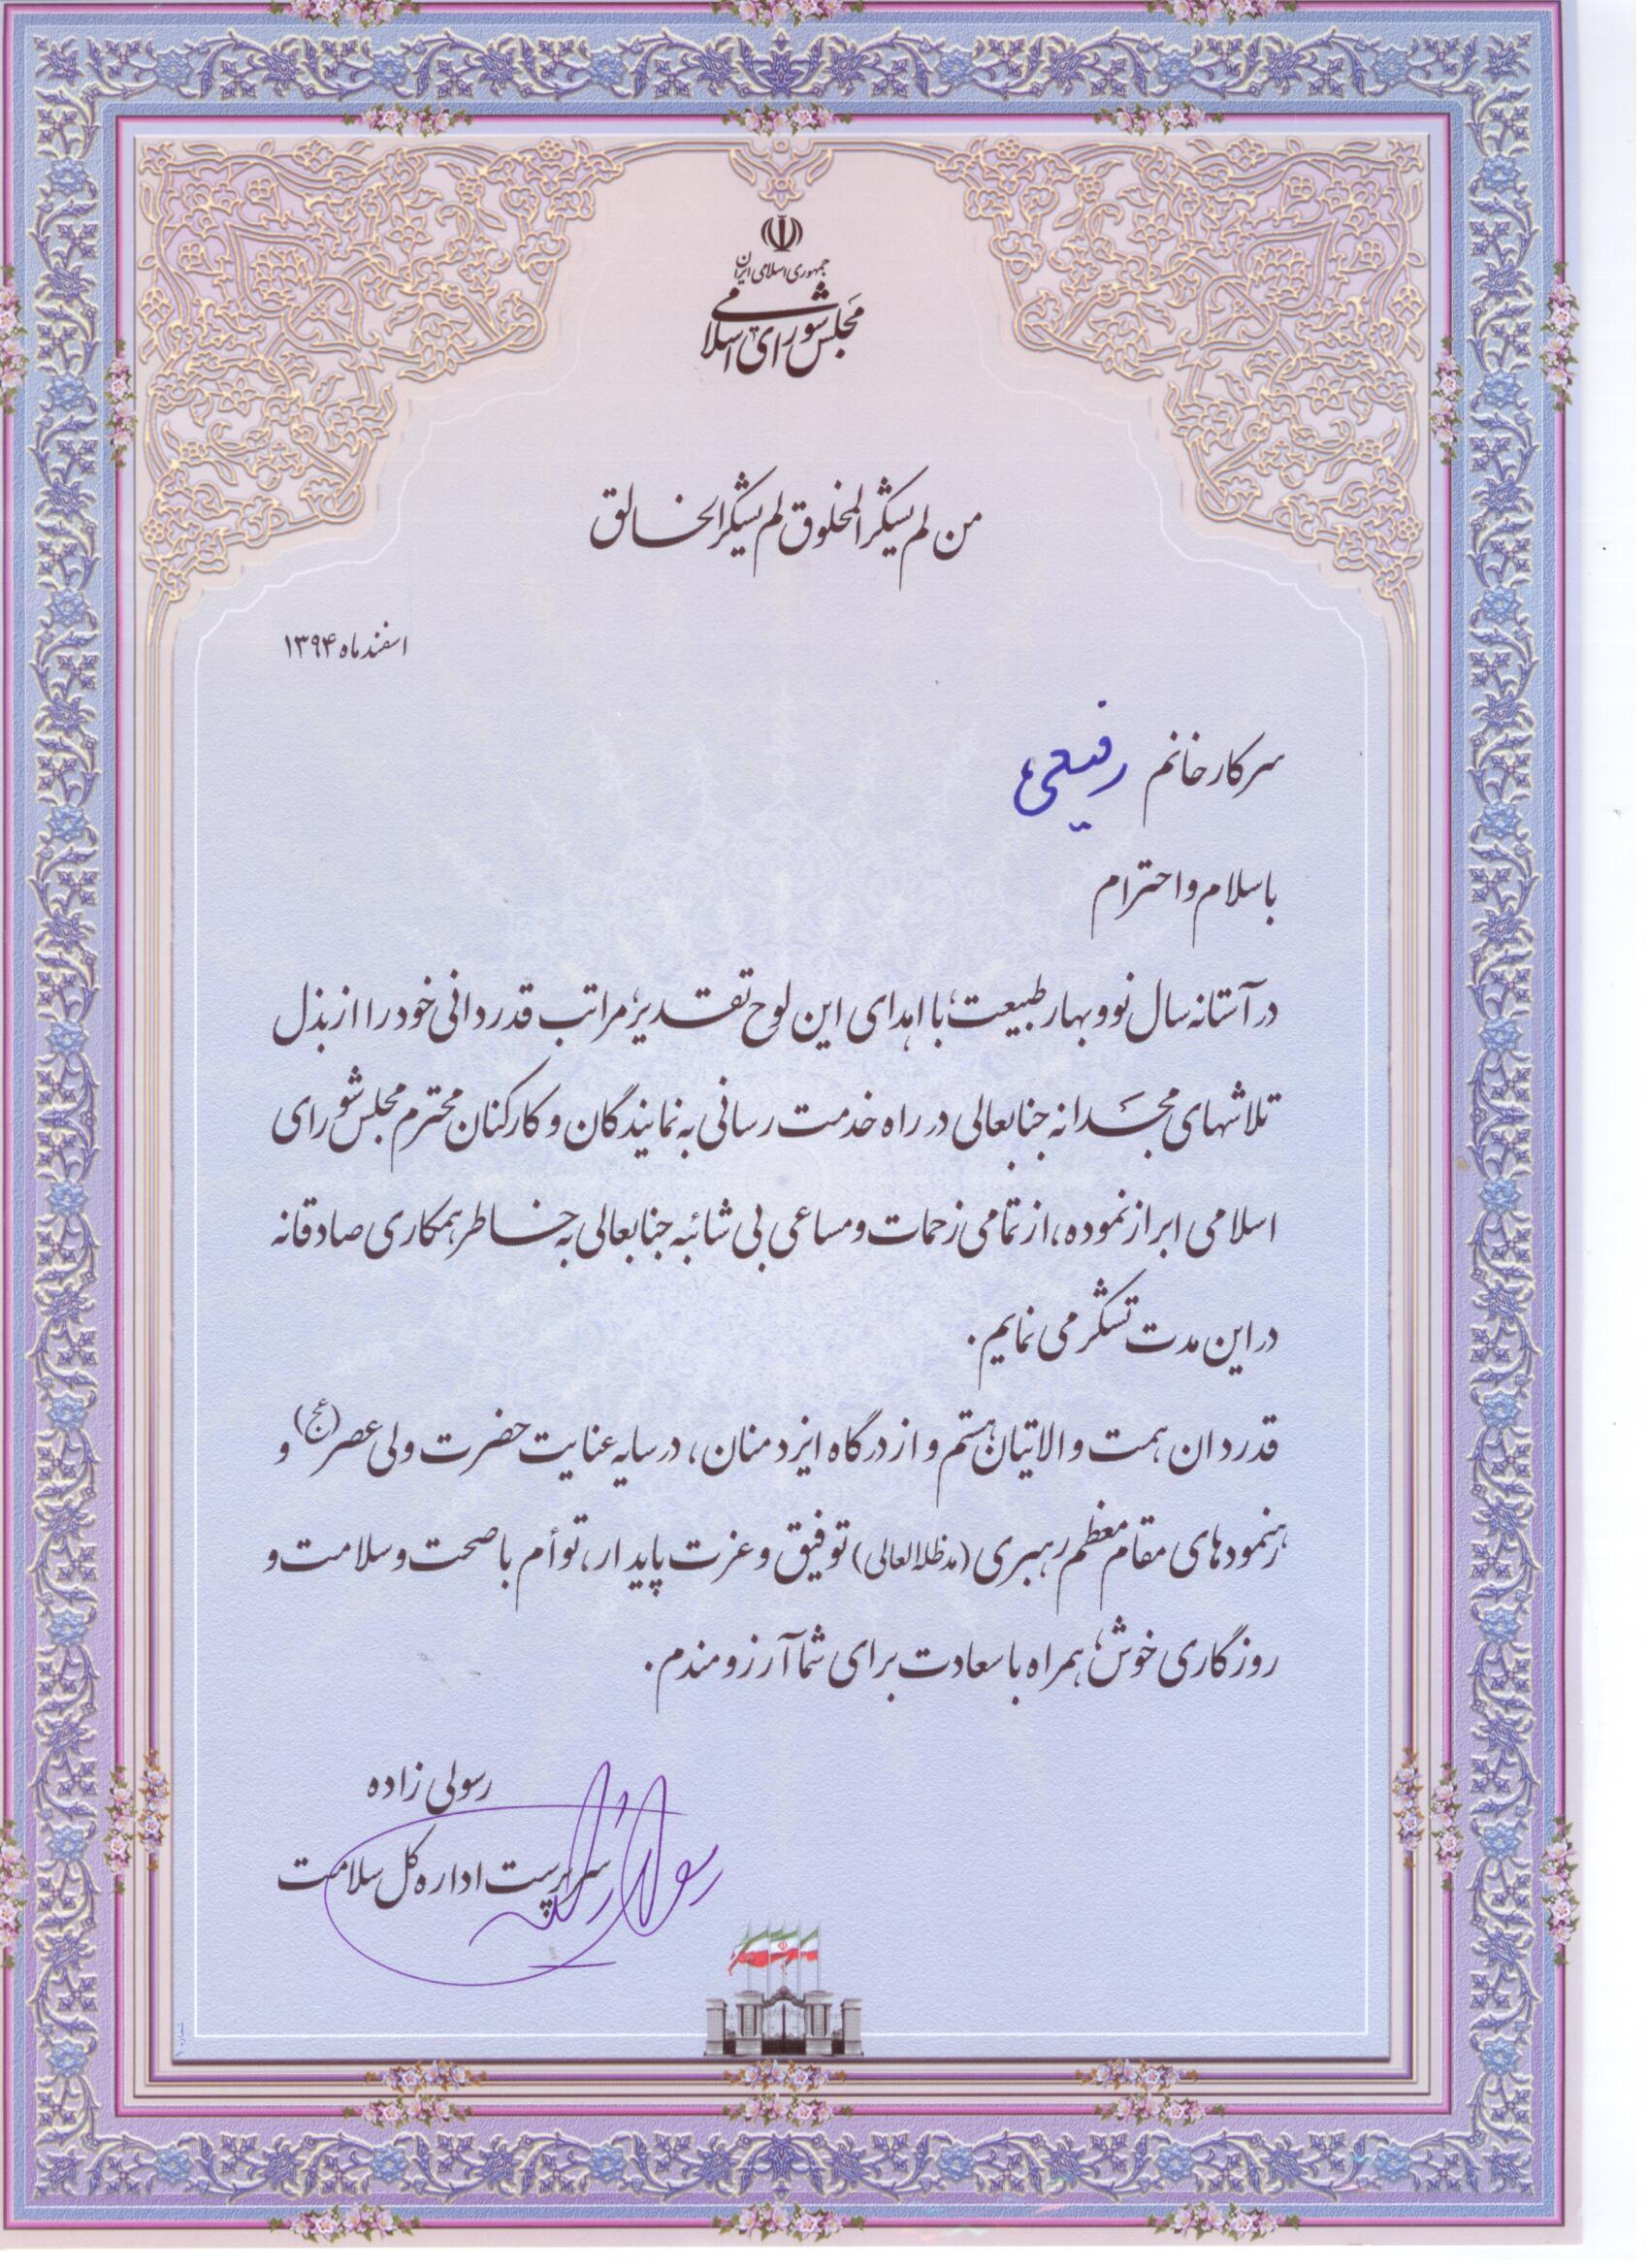 جمهوری اسلامی ایران
مجلس شورای اسلامی
من لم یشکر المخلوق لم یشکر الخالق
اسفند ماه ۱۳۹۴
سرکار خانم رفیعی
با سلام و احترام
در آستانه سال نو و بهار طبیعت، با اهدای این لوح تقدیر، مراتب قدردانی خود را از بذل
تلاشهای مجدانه جنابعالی در راه خدمت رسانی به نمایندگان و کارکنان محترم مجلس شورای
اسلامی ابراز نموده، از تمامی زحمات و مساعی بی شائبه جنابعالی به خاطر همکاری صادقانه
در این مدت تشکر می نمایم.
قدردان همت والایتان هستم و از درگاه ایزد منان، در سایه عنایت حضرت ولی عصر (عج) و
رهنمودهای مقام معظم رهبری (مدظله العالی) توفیق و عزت پایدار، توأم با صحت و سلامت و
روزگاری خوش، همراه با سعادت برای شما آرزومندم.
رسولی زاده
سرپرست اداره کل سلامت